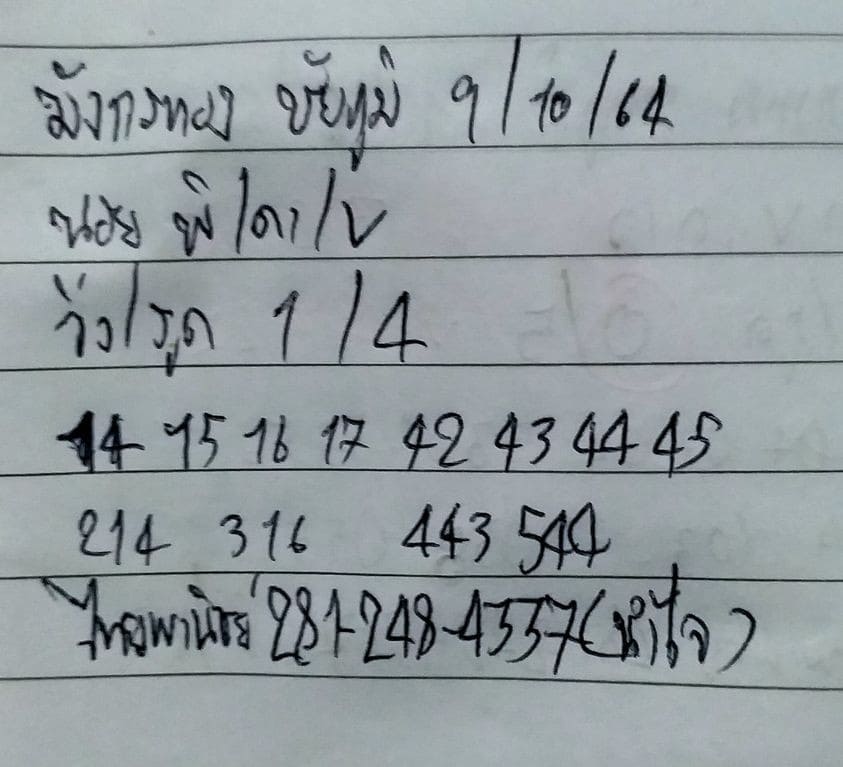 มังกรทอง ชัยภูมิ 9/10/64
นอย พิ/ดา/V
วิ่ง/รูด 1/4
14 15 16 17 42 43 44 45
214 316 443 544
ไทยพานิชย์ 281-248-4557 (น้ำใจ)